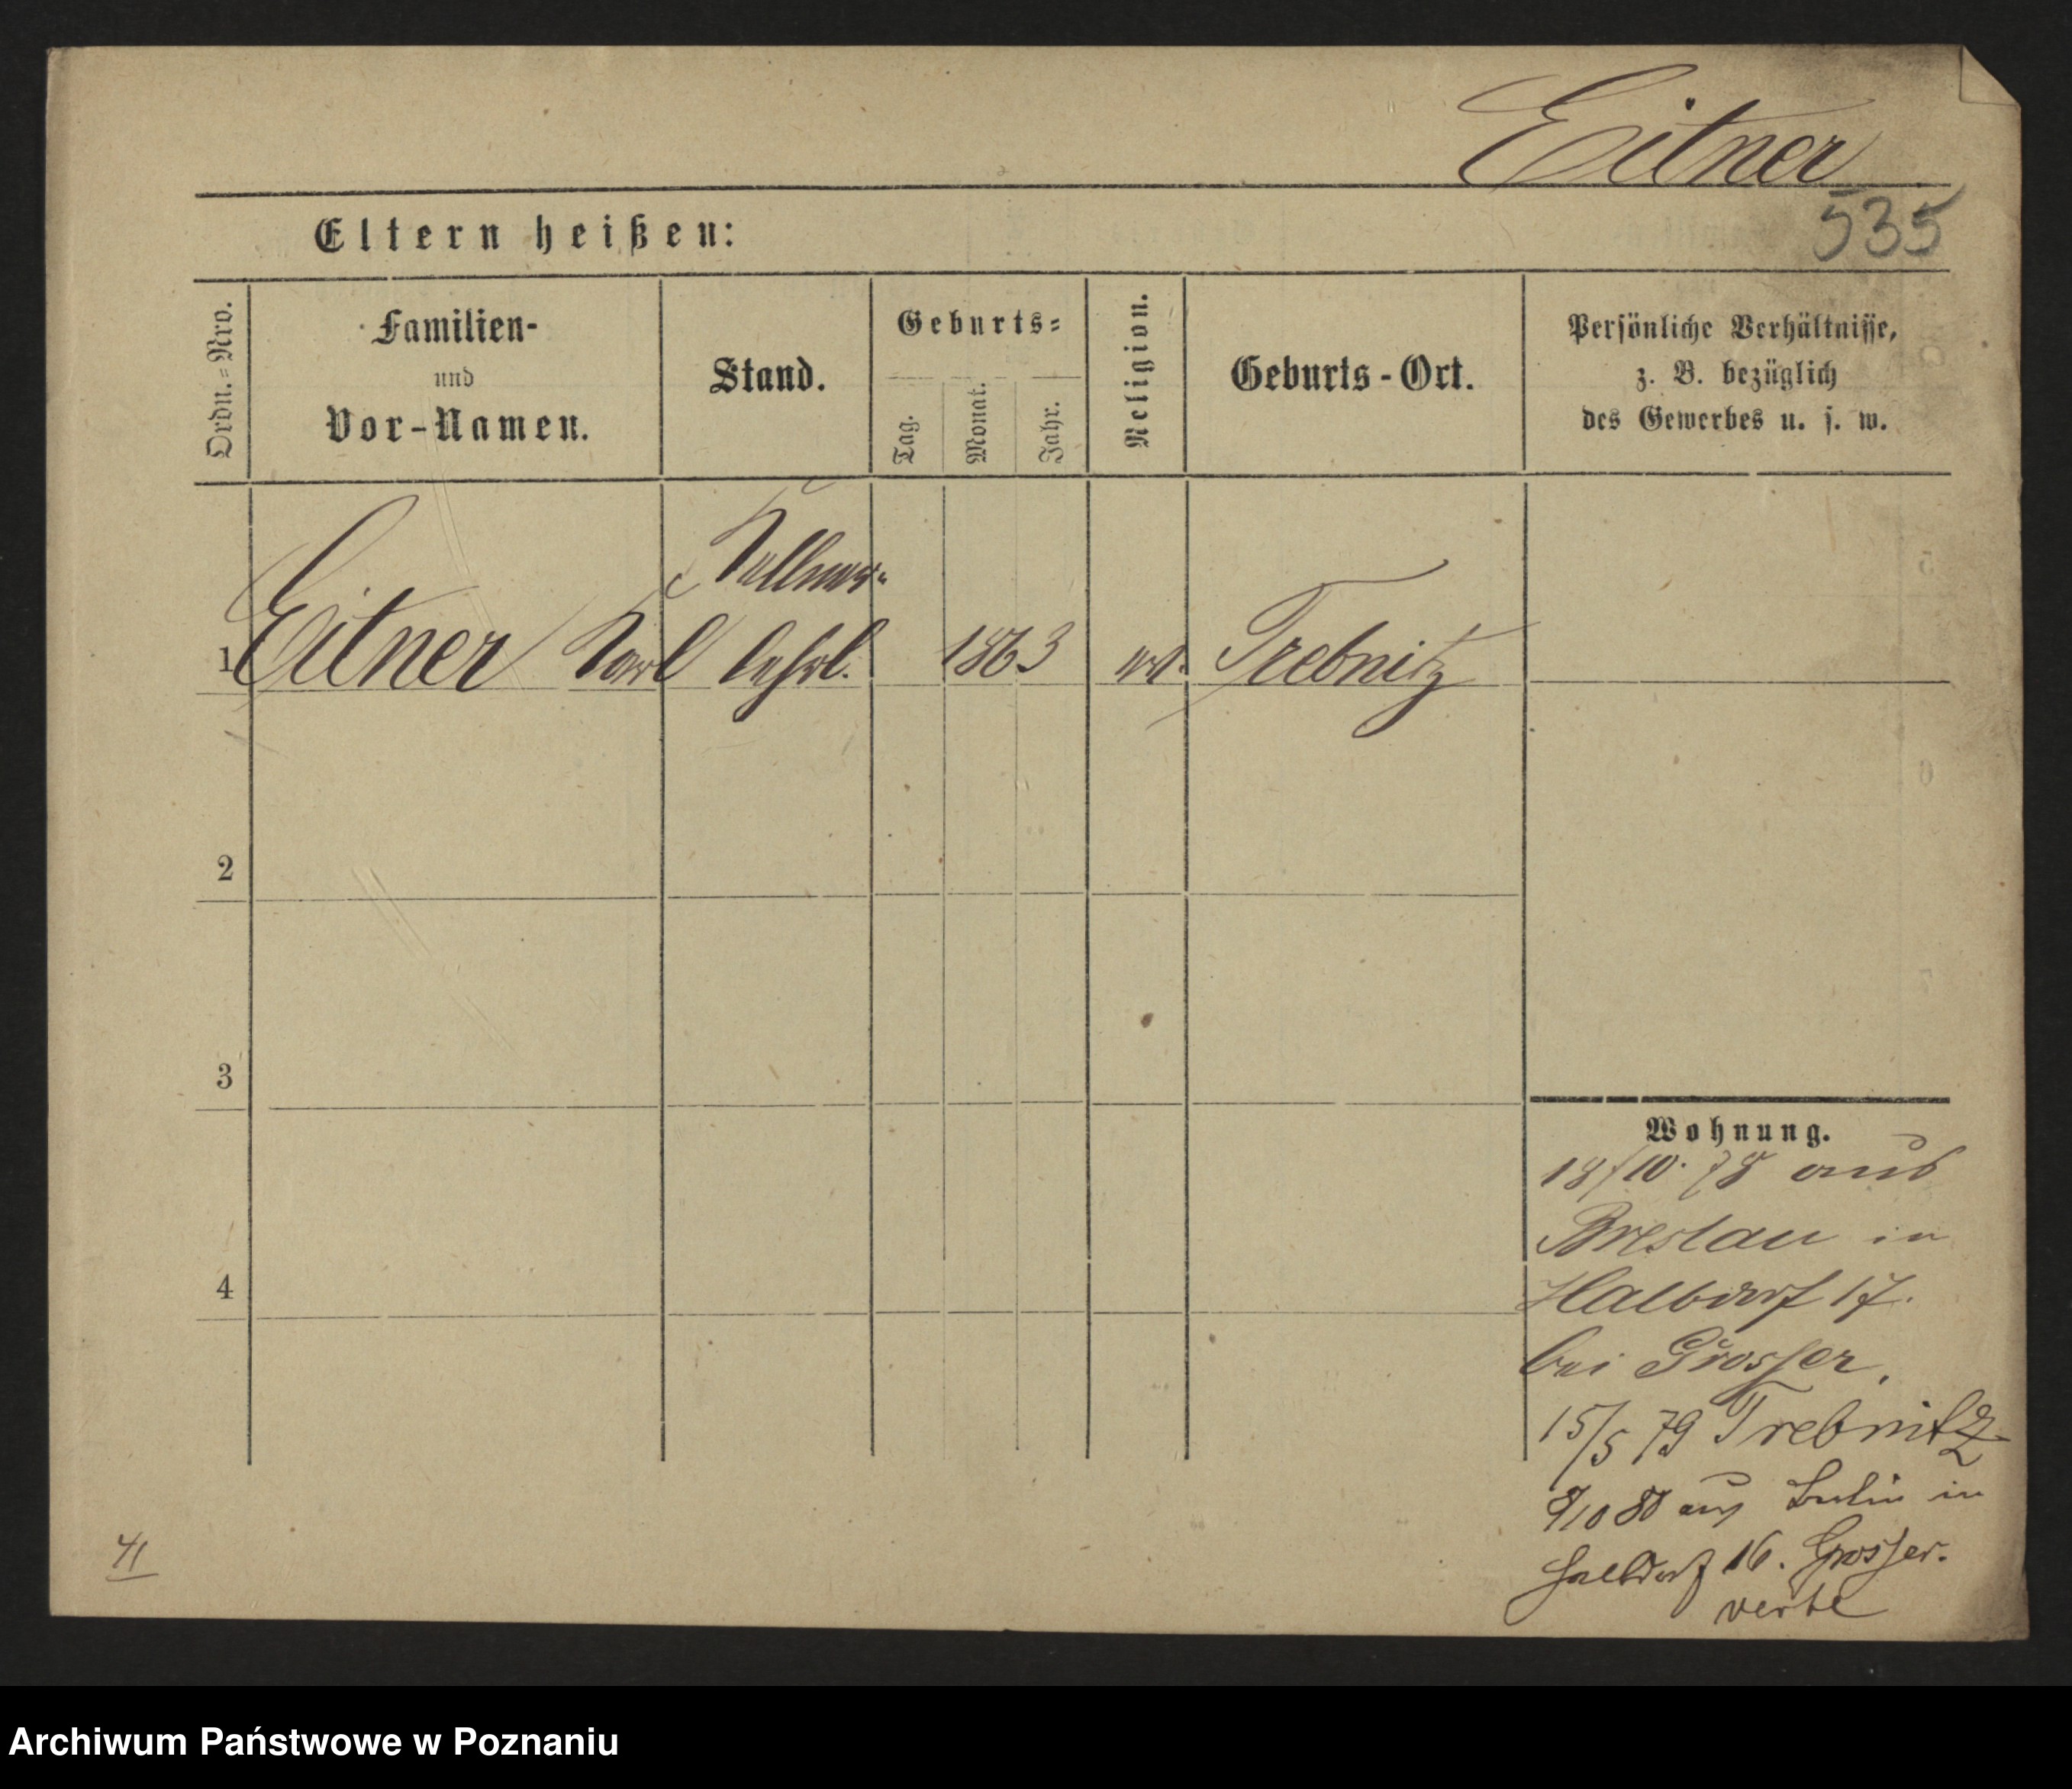 Eitner
535
Eltern heißen:
Ordn.=Nro.
Familien-
und
Vor-Namen.
Stand.
Geburts=
Tag.
Monat.
Jahr.
Religion.
Geburts-Ort.
Persönliche Verhältnisse,
z. B. bezüglich
des Gewerbes u. s. w.
Kellner-
1 Eitner Karl lehrl. 1863 Trebnitz
2
3
4
Wohnung.
18/10. 78 aus
Breslau in
Halbdorf 17.
bei Grosser.
15/5 79 Trebnitz
10 80 aus Berlin in
Halbdorf 16. Grosser.
verte
41
Archiwum Państwowe w Poznaniu